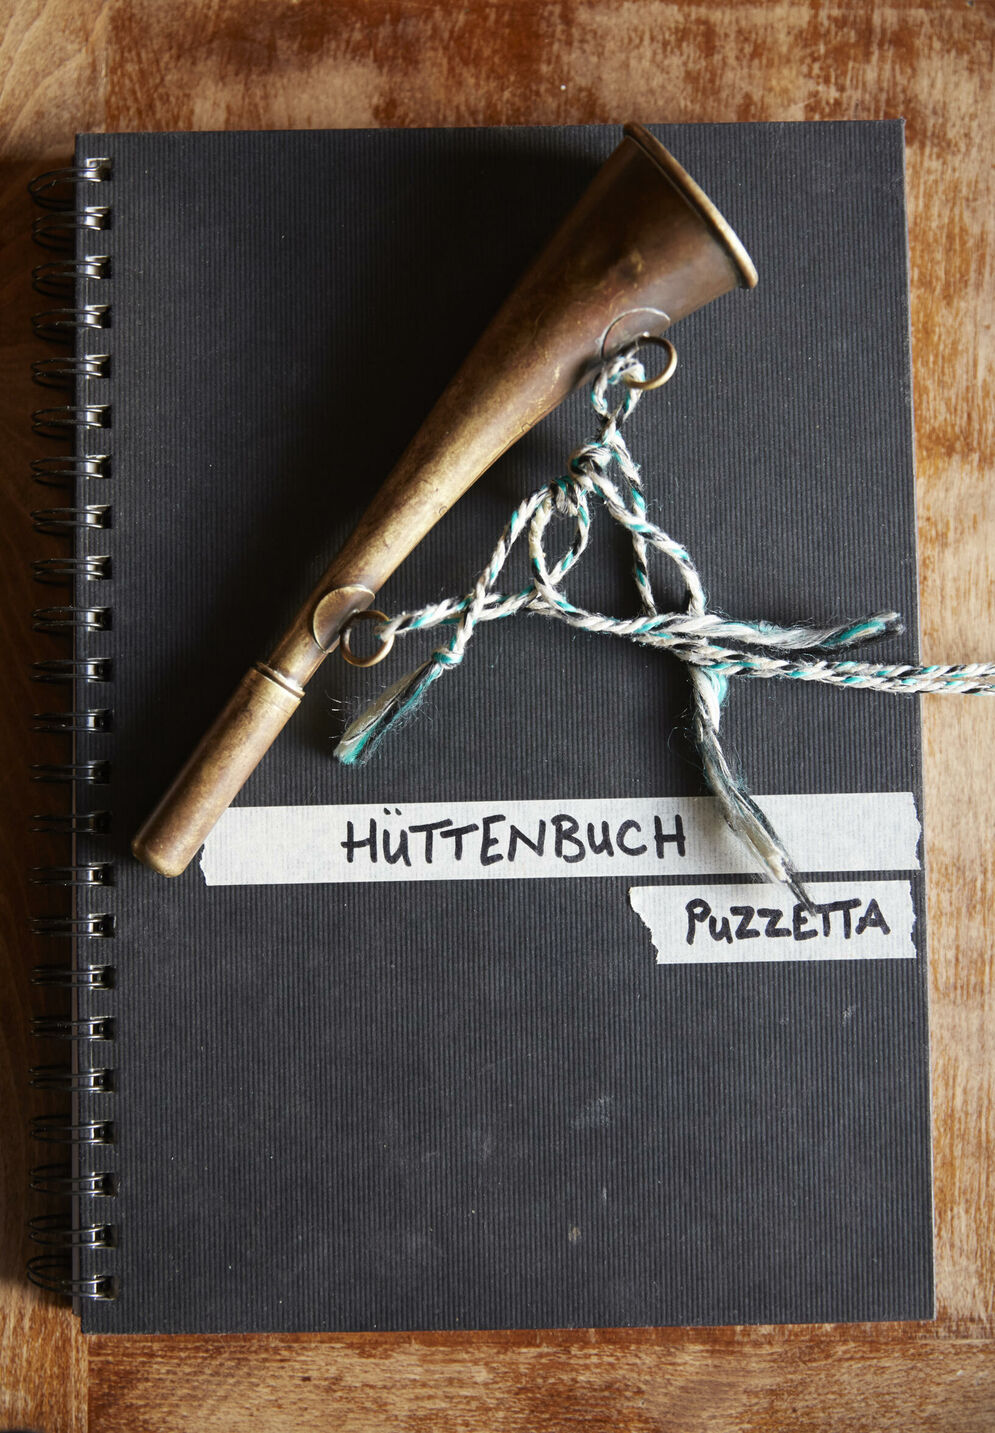 HÜTTENBUCH
PUZZETTA